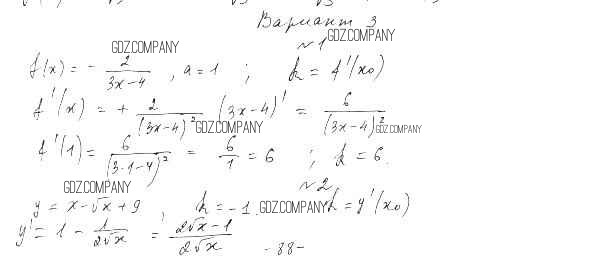 Вариант 3
GDZ.COMPANY
№1 GDZ.COMPANY
f(x) = - 2/(3x-4), a = 1 ; k = f'(x₀)
f'(x) = + 2/(3x-4)² (3x-4)' = 6/(3x-4)²
GDZ.COMPANY GDZ.COMPANY
f'(1) = 6/(3·1-4)² = 6/1 = 6 ; k = 6.
GDZ.COMPANY №2
y = x - √x + 9 k = -1. GDZ.COMPANY k = y'(x₀)
y' = 1 - 1/(2√x) = (2√x - 1)/(2√x)
- 88 -